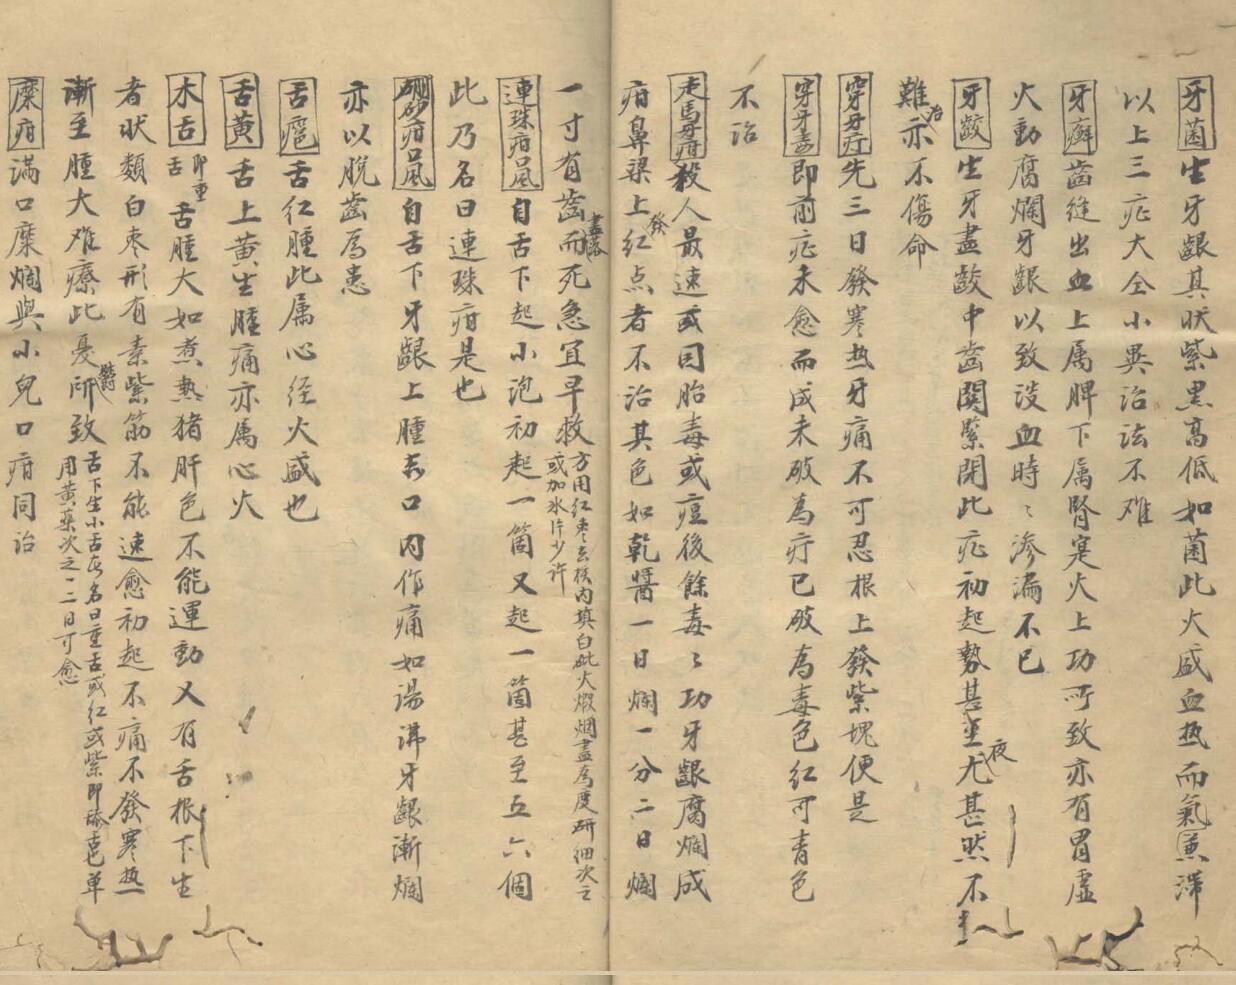 牙菌生牙齦其狀紫黑高低如菌此火盛血热而氣滯
以上三症大仝小異治法不难
牙癬齒縫出血上属脾下属腎寔火上功所致亦有胃虛
火動腐爛牙齦以致淡血時〻渗漏不已
牙骰生牙盡骰中齒關緊閉此症初起勢甚至夜尤甚然不
難治亦不傷命
穿牙疔先三日發寒热牙痛不可忍根上發紫塊便是
穿牙毒即前症未愈而成未破為疔已破為毒色紅可青色
不治
走馬牙疳殺人最速或因胎毒或痘後餘毒〻功牙齦腐爛成
疳鼻梁上發红点者不治其色如乾醬一日爛一分二日爛
一寸有齒盡落而死急宜早救方用红枣去核内填白砒火煅烟盡為度研细次之
或加冰片少许
連珠疳風自舌下起小泡初起一箇又起一箇甚至五六個
此乃名曰連珠疳是也
硼砂疳風自舌下牙齦上腫赤口内作痛如湯沸牙齦漸爛
亦以脱齒為患
舌瘪舌红腫此属心经火盛也
舌黄舌上黄生腫痛亦属心火
木舌即重舌舌腫大如煮熟猪肝色不能運動又有舌根下生
者状類白枣形有素紫筋不能速愈初起不痛不發寒热
漸至腫大难療此憂鬱所致舌下生小舌此名曰重舌或红或紫即舌包单
用黄藥次之二日可愈
糜疳滿口糜爛與小兒口疳同治